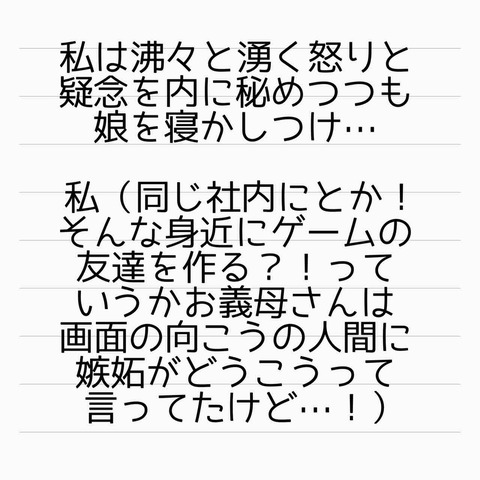 私は沸々と湧く怒りと
疑念を内に秘めつつも
娘を寝かしつけ…
私（同じ社内にとか！
そんな身近にゲームの
友達を作る？！って
いうかお義母さんは
画面の向こうの人間に
嫉妬がどうこうって
言ってたけど…！）